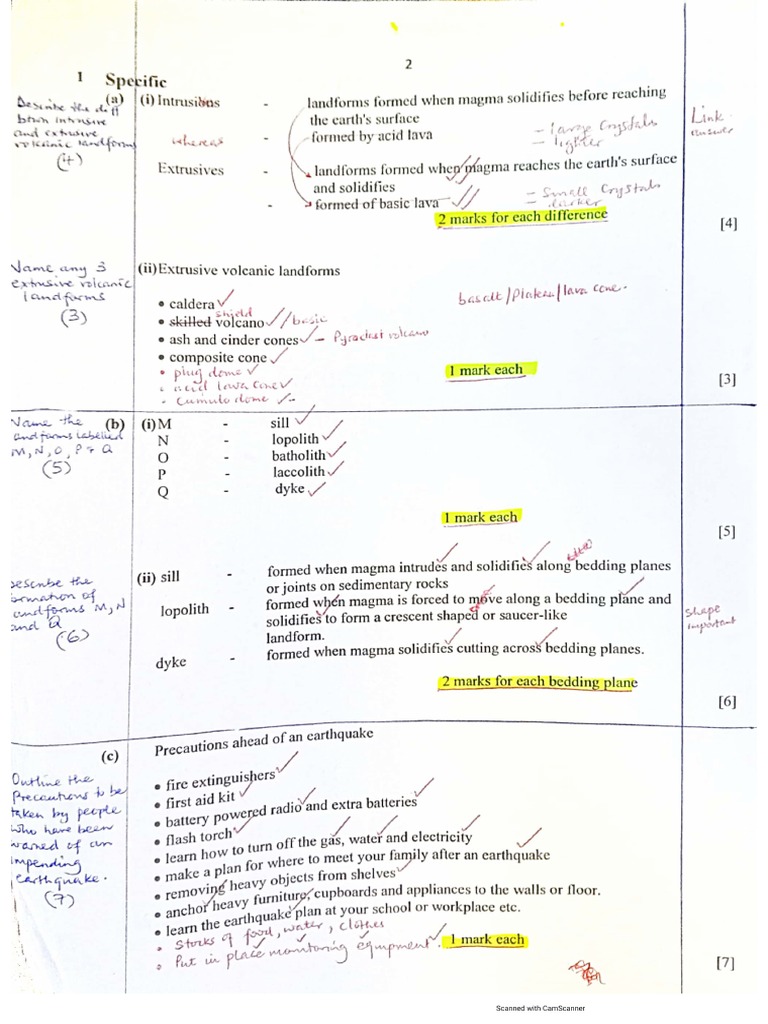 2
1 Specific
Describe the diff
btwn intrusive
and extrusive
volcanic landforms
(4)
(a) (i) Intrusives - landforms formed when magma solidifies before reaching
the earth's surface
whereas - formed by acid lava
- large crystals
- lighter
Link
answer
Extrusives - landforms formed when magma reaches the earth's surface
and solidifies
- formed of basic lava
- Small crystals
- darker
2 marks for each difference
[4]
Name any 3
extrusive volcanic
landforms
(3)
(ii) Extrusive volcanic landforms
• caldera
shield
• skilled volcano // basic
• ash and cinder cones - Pyroclast volcano
• composite cone
• plug dome
• acid lava cone
• cumulo dome
basalt/Plateau/lava cone.
1 mark each
[3]
Name the
landforms labelled
M, N, O, P & Q
(5)
(b) (i) M - sill
N - lopolith
O - batholith
P - laccolith
Q - dyke
1 mark each
[5]
Describe the
formation of
landforms M, N
and Q
(6)
(ii) sill - formed when magma intrudes and solidifies along bedding planes
or joints on sedimentary rocks
lopolith - formed when magma is forced to move along a bedding plane and
solidifies to form a crescent shaped or saucer-like
landform.
Shape
important
dyke - formed when magma solidifies cutting across bedding planes.
2 marks for each bedding plane
[6]
(c) Precautions ahead of an earthquake
Outline the
Precautions to be
taken by people
who have been
warned of an
impending
earthquake.
(7)
• fire extinguishers
• first aid kit
• battery powered radio and extra batteries
• flash torch
• learn how to turn off the gas, water and electricity
• make a plan for where to meet your family after an earthquake
• removing heavy objects from shelves
• anchor heavy furniture, cupboards and appliances to the walls or floor.
• learn the earthquake plan at your school or workplace etc.
• Stocks of food, water, clothes
• Put in place monitoring equipment.
1 mark each
[7]
Scanned with CamScanner